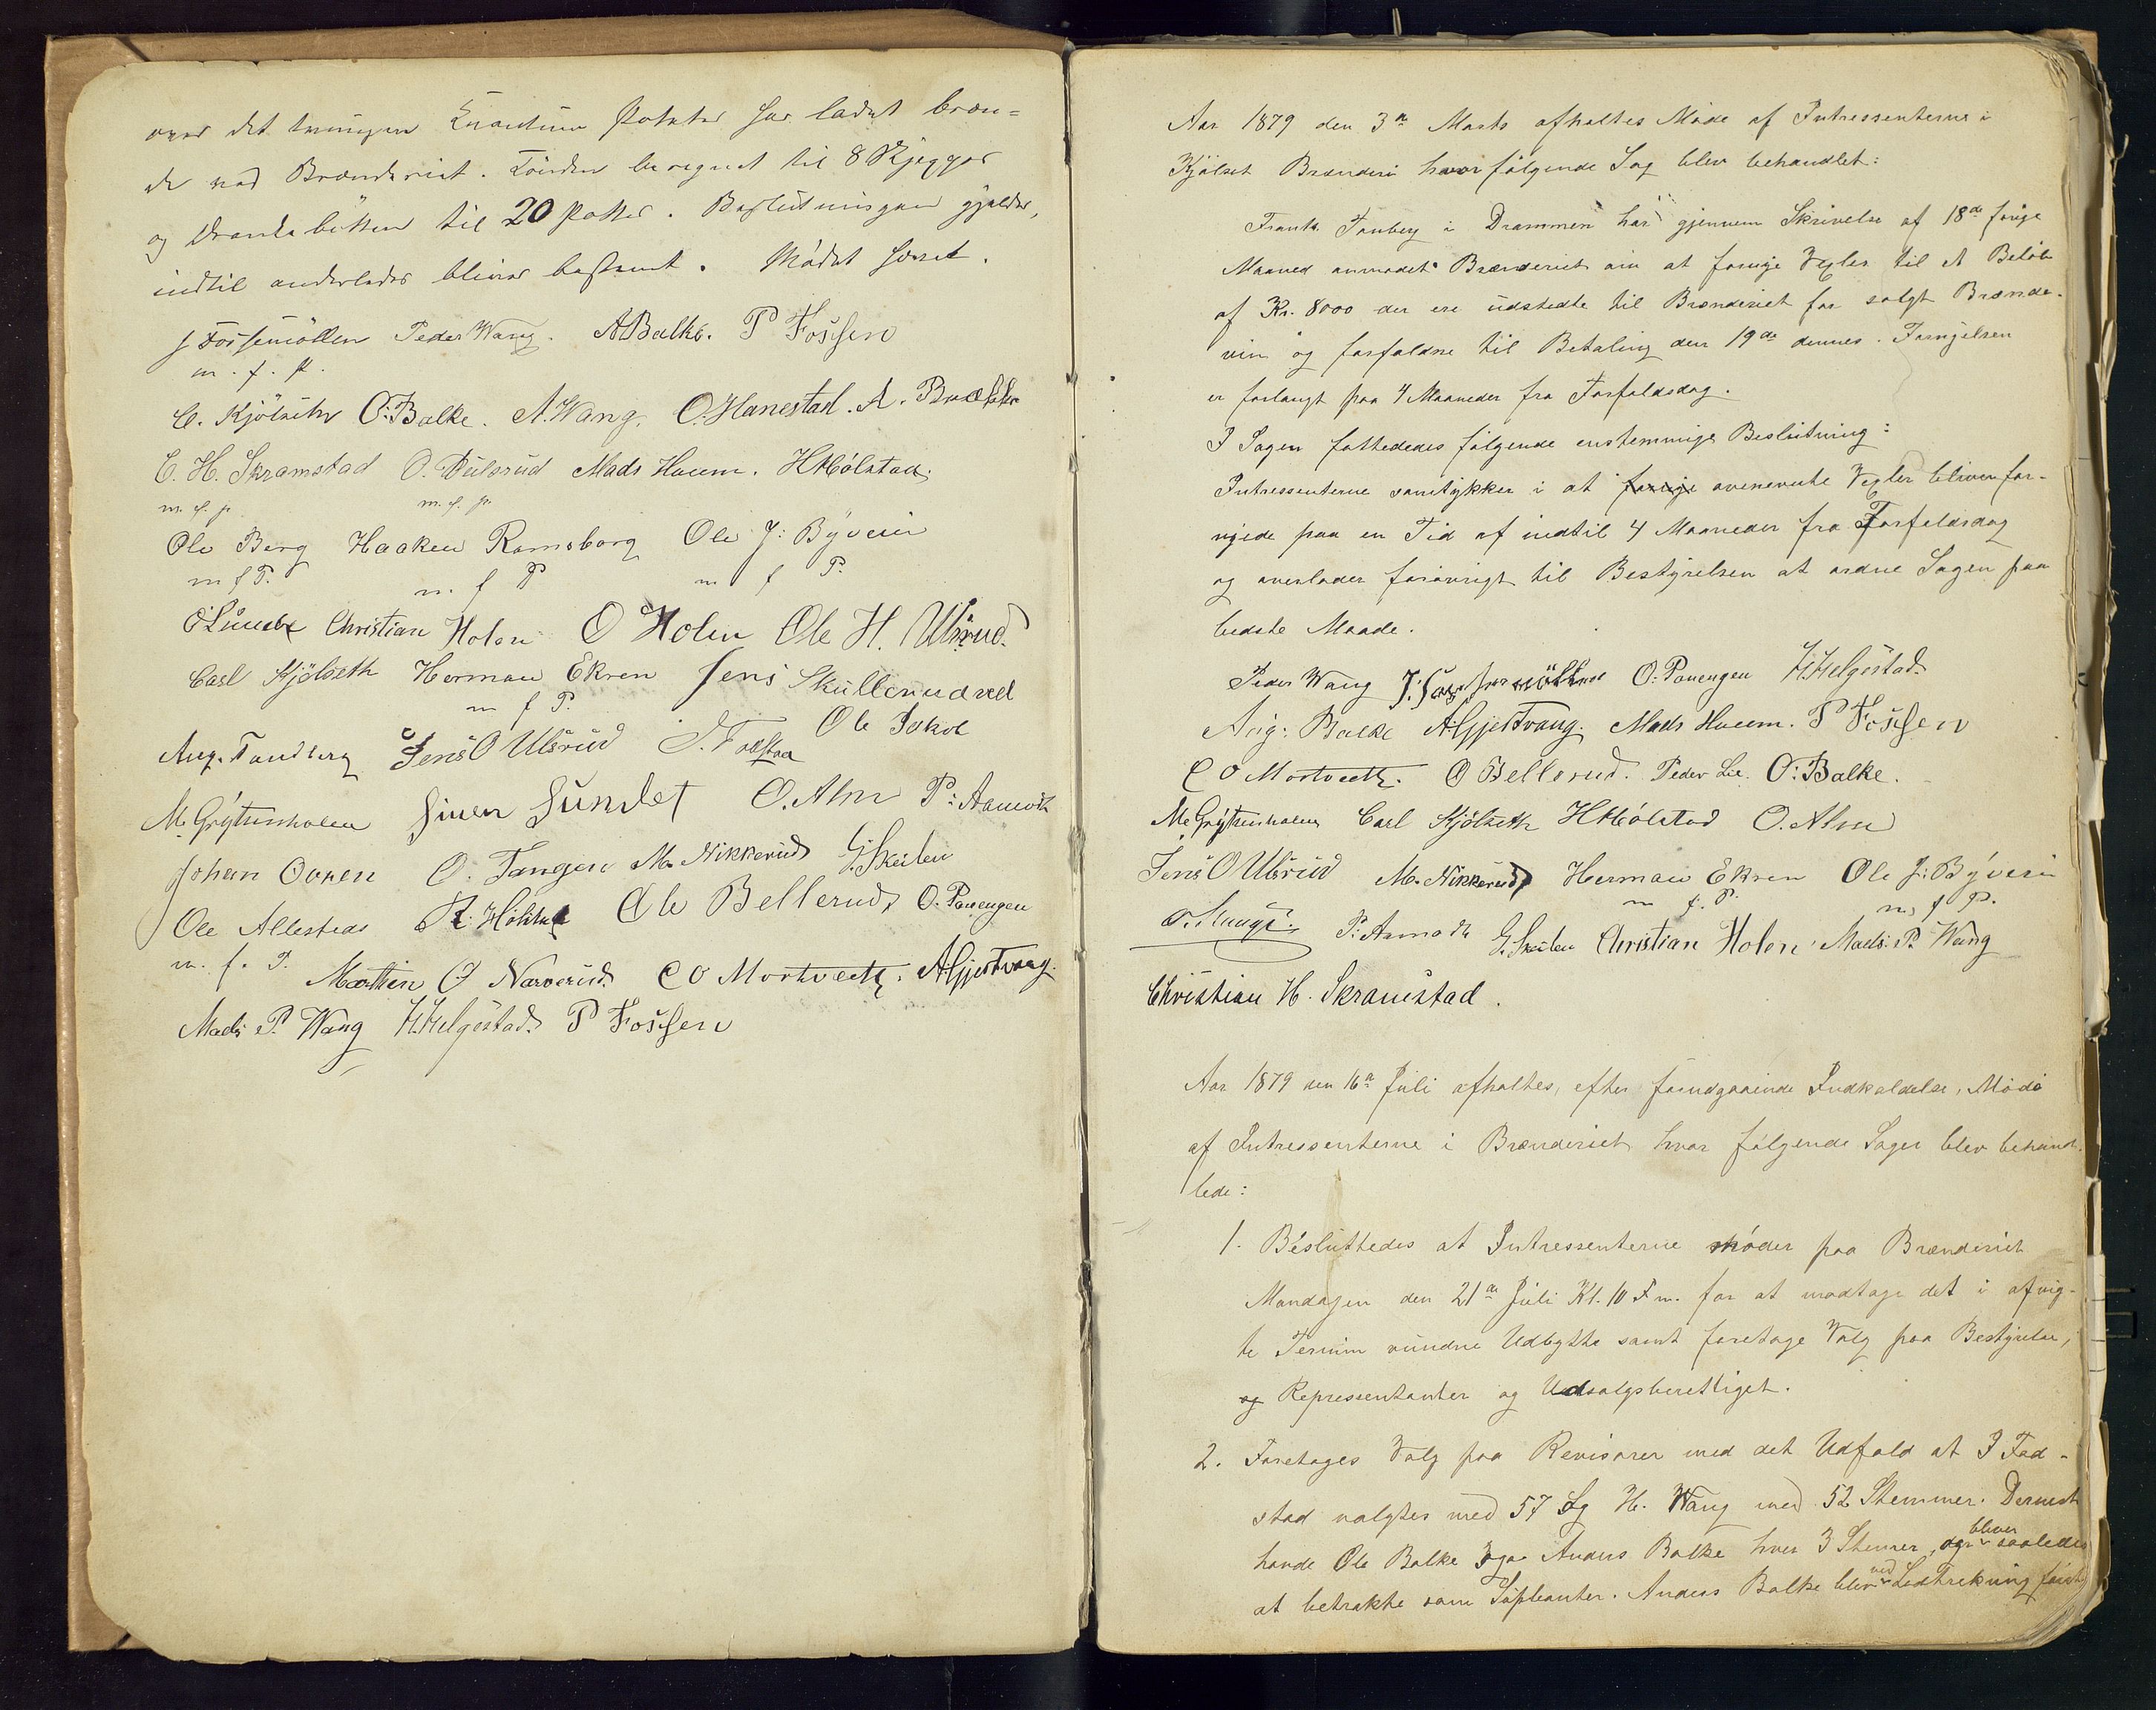 over det tvungne Qvantum Poteter har ladet bræn-
de ved Brænderiet. Tønden beregnet til 8 Skjepper
og Drankebøtten til 20 Potter. Beslutningen gjælder,
indtil anderledes bliver bestemt. Mødet hævet.
J Fossemöllen Peder Wang. A Balke. P Fossen
m. f. P.
C. Kjölseth O: Balke. A. Wang. O. Hanestad. A. Brække
C. H. Skramstad O. Mads Hoem. H Mölstad.
m. f. p. m. f. p.
Ole Berg Haaken Ramsborg Ole J: Byveien
m f P. m. f P m f P.
Christian Holen O Holen Ole H. Ulsrud.
Carl Kjölseth Herman Ekren Jens Skullerudred
m f P.
Aug. Tandberg Jens O Ulsrud Ole Jokob
M. Grytenholen Siver Sundet O. Alm P: Aamodt
Johan Ovren O. Tangen M. Nikkerud G. Skeilen
Ole Allestad Ole Bellerud O. Pauengen
m. f. P. Marthin O Narverud. C O Mortvedt. A Gjestvang.
Mads P. Wang H. Helgestad. P Fossen
Aar 1879 den 3de Marts afholtes Möde af Intressenterne i
Kjölset Brænderi hvor fölgende Sag blev behandlet:
Frants Fauberg i Drammen har gjennem Skrivelse af 18de forige
Maaned anmodet Brænderiet om at fornye Vexler til et Belöb
af Kr. 8000 der ere udstedte til Brænderiet for solgt Brænde-
vin og forfaldne til Betaling den 19de dennes. Fornyelsen
er forlangt paa 4 Maaneder fra Forfaldsdag.
I Sagen fattededes fölgende enstemmige Beslutning:
Intressenterne samtykker i at fornye ovenevnte Vexler bliver for-
nyede paa en Tid af indtil 4 Maaneder fra Forfaldsdag
og overlader forövrigt til Bestyrelsen at ordne Sagen paa
bedste Maade.
Peder Wang J. Fossemöllen O. Pauengen H. Helgestad
Aug: Balke A Gjestvang. Mads Hoem. P Fossen
C O Mortvedt. O Bellerud. Peder Lie. O: Balke.
M. Grytenholen Carl Kjölseth H Mölstad O. Alm
Jens O Ulsrud M. Nikkerud Herman Ekren Ole J: Byveien
m f. P. m f P.
O. Hauge. P: Aamodt G. Skeilen Christian Holen Mads P. Wang
Christian H. Skramstad.
Aar 1879 den 16de Juli afholtes, efter forudgaaende Indkaldelse, Möde
af Intressenterne i Brænderiet hvor fölgende Sager blev behand-
lede:
1. Besluttedes at Intressenterne möder paa Brænderiet
Mandagen den 21de Juli Kl. 10 Fm. for at modtage det i afvig-
te Termin vundne Udbytte samt foretage Valg paa Bestyrelse,
og Representanter og Udsalgsberettiget.
2. Foretages Valg paa Revisorer med det Udfald at J Fad-
stad valgtes med 57 og H. Wang med 52 Stemmer. Dernest
havde Ole Balke og Anders Balke hver 3 Stemmer, og bliver saaledes
at betrakte som Supleanter. Anders Balke blev ved Lodtrekning förste